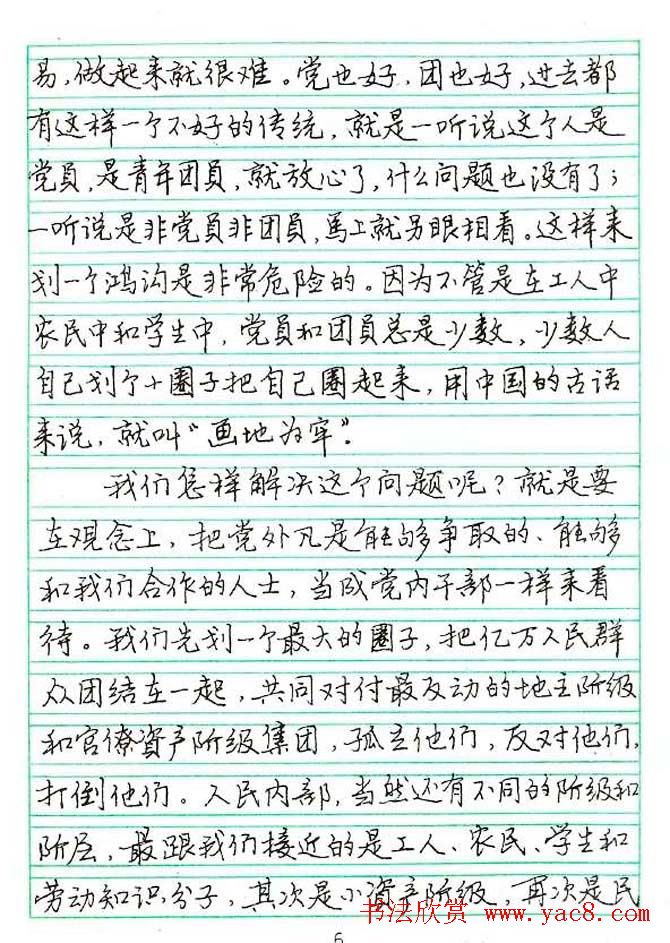 易,做起来就很难。党也好,团也好,过去都
有这样一个不好的传统,就是一听说这个人是
党員,是青年团員,就放心了,什么问题也没有了;
一听说是非党员非团員,馬上就另眼相看。这样来
划一个鸿沟是非常危险的。因为不管是在工人中
农民中和学生中,党員和团員总是少数,少数人
自己划个小圈子把自己圈起来,用中国的古语
来说,就叫“画地为牢”。
我们怎样解决这个问题呢?就是要
在观念上,把党外凡是能够争取的、能够
和我们合作的人士,当成党内干部一样来看
待。我们先划一个最大的圈子,把亿万人民群
众团结在一起,共同对付最反动的地主阶级
和官僚資产阶级集团,孤立他们,反对他们,
打倒他们。人民内部,当然还有不同的阶级和
阶层,最跟我们接近的是工人、农民、学生和
劳动知识分子,其次是小資产阶级,再次是民
书法欣赏 www.yac8.com
6